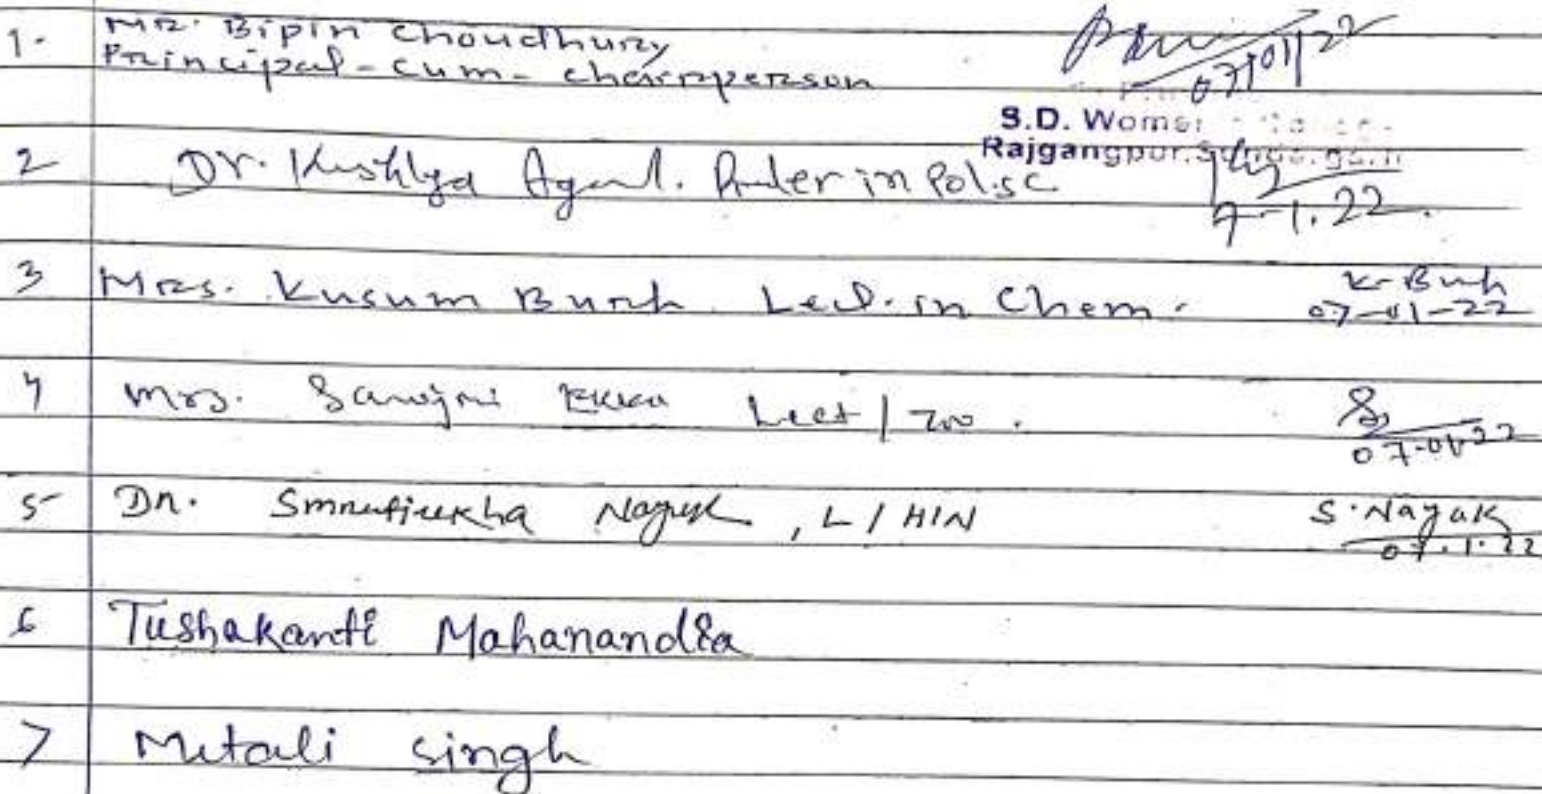 1. Mr. Bipin Choudhury
Principal-cum-chairperson
07/01/22
S.D. Women
Rajgangpur, Sundargarh
2 Dr. Kushlya Agrawal. Reader in Pol.sc
7-1.22.
3 Mrs. Kusum Burh Lect. in Chem.
K. Burh
07-01-22
4 Mrs. Sarojni Ekka Lect / Zoo.
07-01-22
5 Dr. Smrutirekha Nayak, L / HIN
S. Nayak
07.1.22
6 Tushakanti Mahanandia
7 Mitali Singh